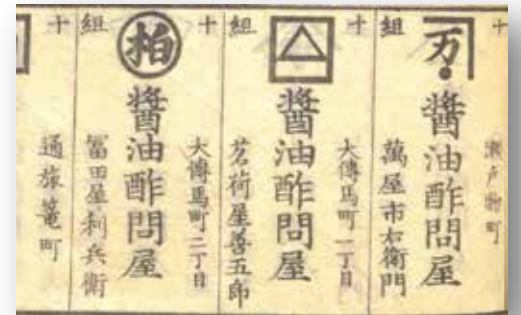 十
瀬戸物町
万
醬油酢問屋
組
萬屋市右衛門
十
大傳馬町一丁目
醬油酢問屋
組
茗荷屋善五郎
十
大傳馬町二丁目
柏
醬油酢問屋
組
冨田屋利兵衛
十
通旅篭町